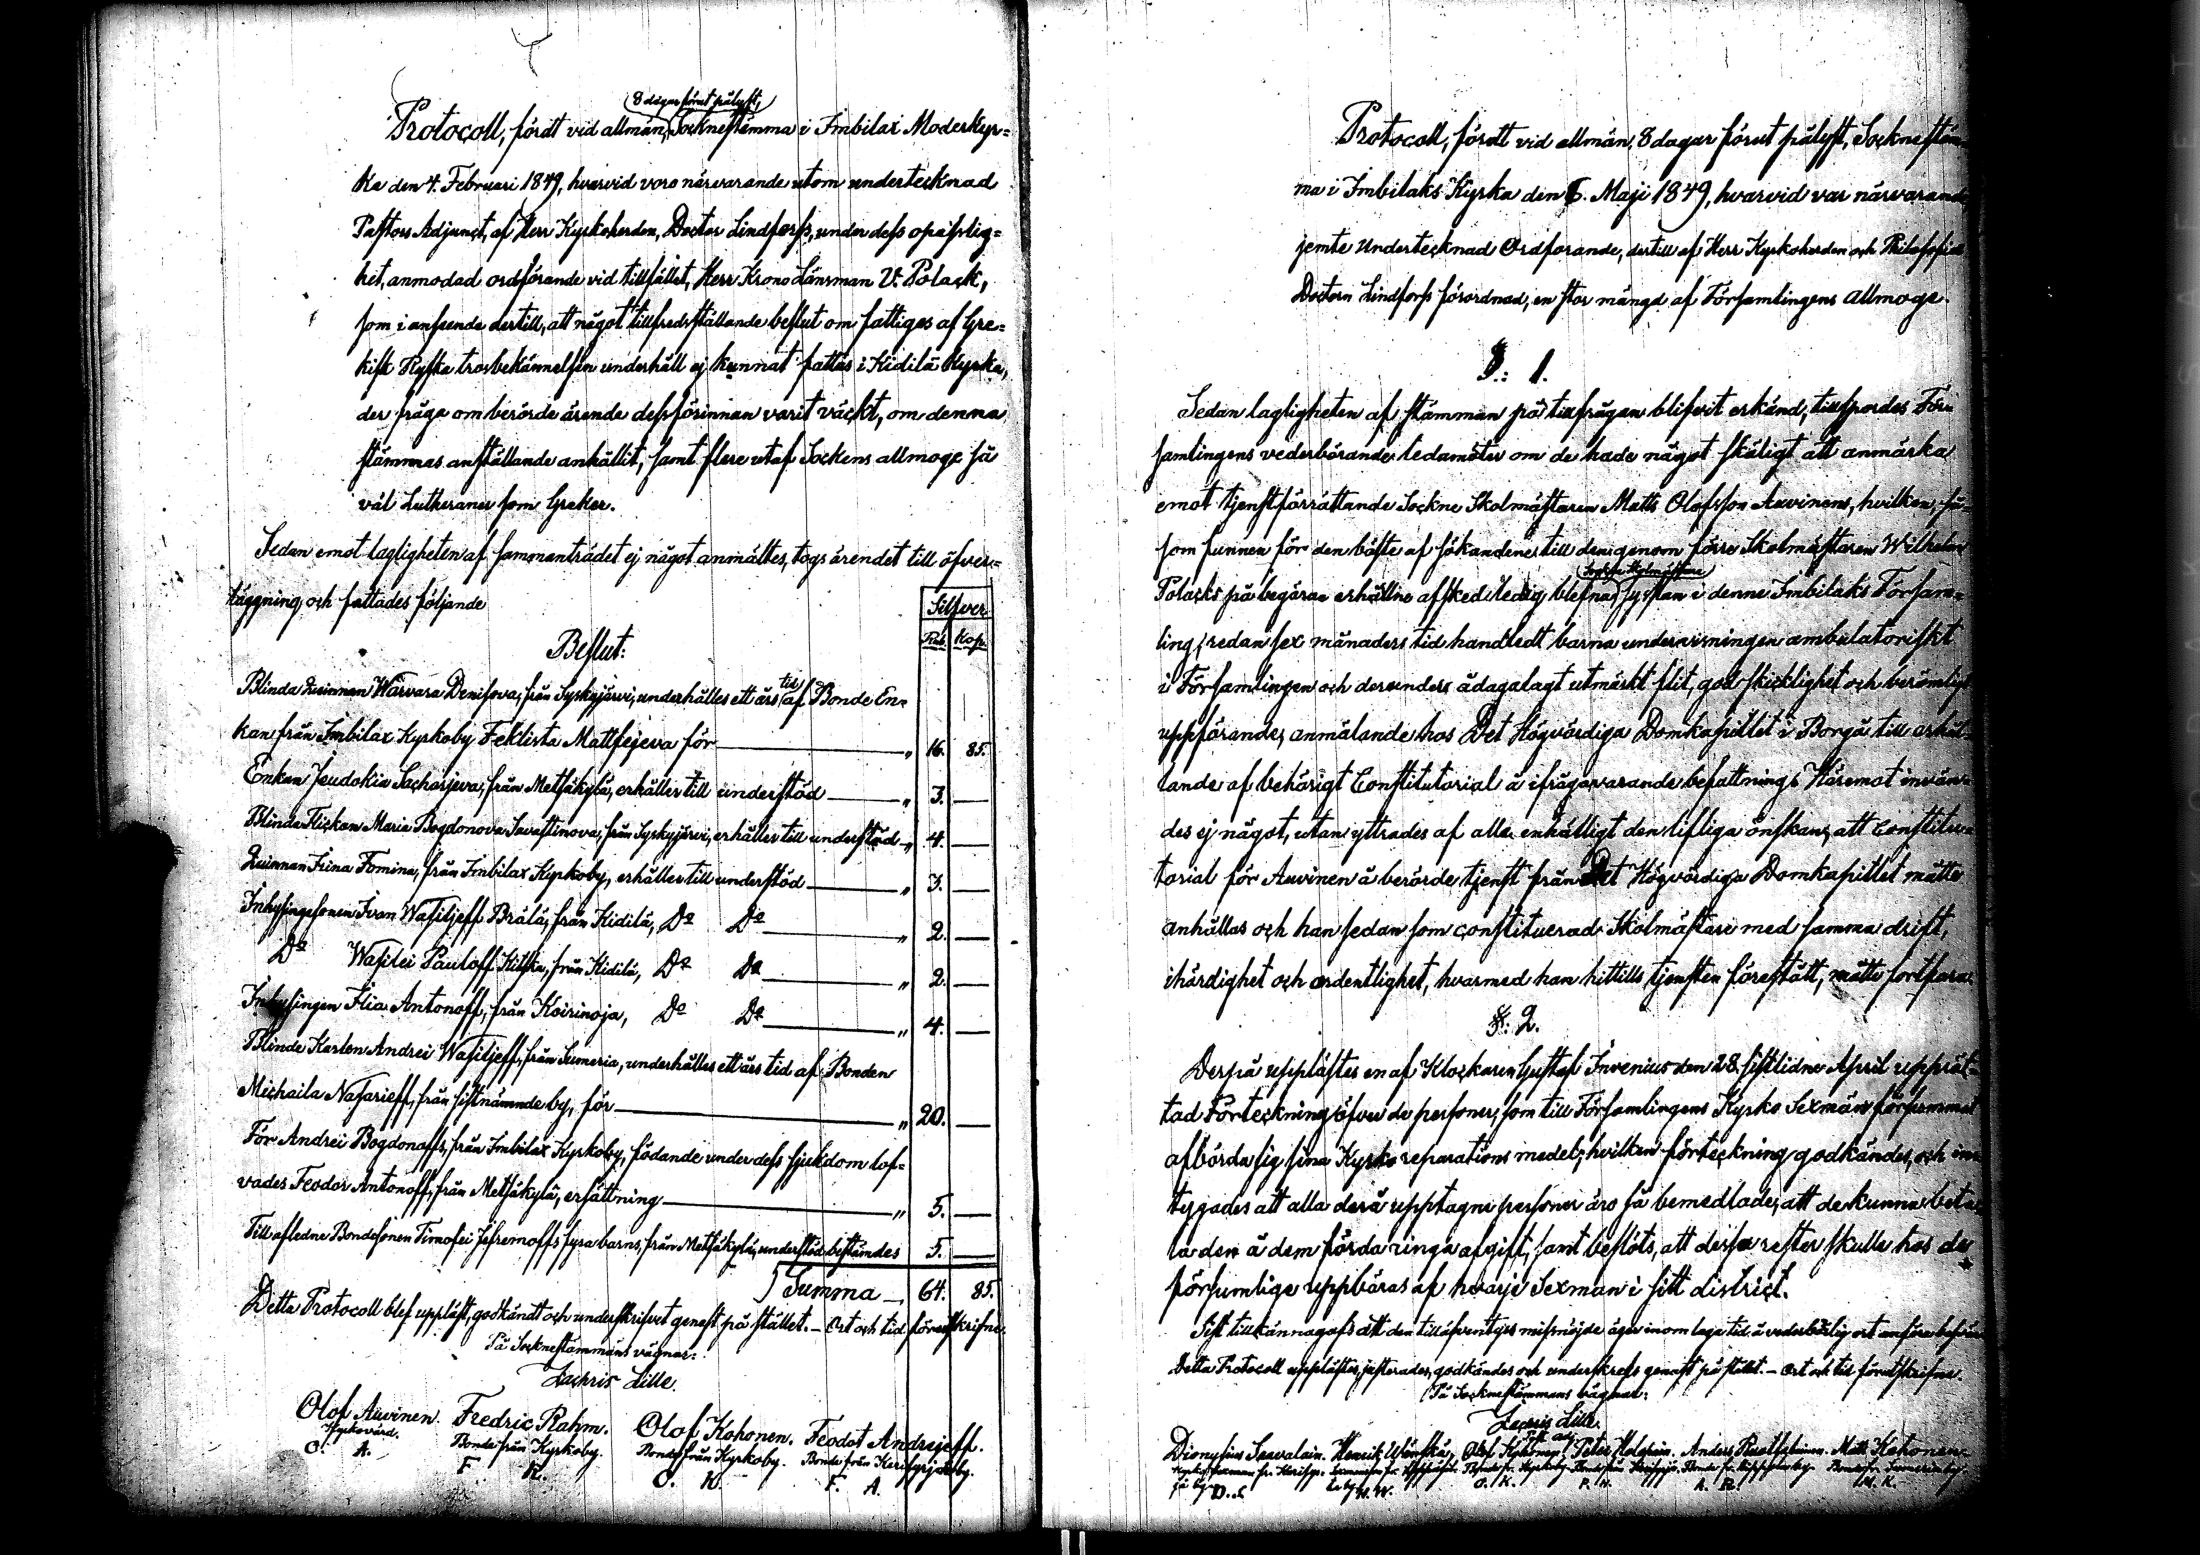 8 dagar förut pålyst,
Protocoll, fördt vid allmän, Socknestämma i Imbilax Moderkyr=
ka den 4. Februari 1849, hvarvid voro närvarande utom undertecknad
Pastors Adjunct, af Herr Kyrkoherden, Doctor Lindforss, under dess opasslig=
het, anmodad ordförande vid tillfället, Herr Krono Länsman V. Polack,
som i anseende dertill, att något tillfredsställande beslut om fattiges af Gre=
kisk Ryska trosbekännelsen underhåll ej kunnat fattas i Kidilä Kyrka,
der fråga om berörde ärende dessförinnan varit väckt, om denna
stämmas anställande anhållit, samt flere utaf Sockens allmoge så
väl Lutheraner som Greker.
Sedan emot lagligheten af sammanträdet ej något anmältes, togs ärendet till öfver=
läggning, och fattades följande
Silfver
Rub. Kop.
Beslut:
Blinda Qvinnan Warvara Denisova, från Syskyjärvi, underhålles ett års tid af Bonde En=
kan från Imbilax Kyrkoby Feklista Mattfejeva för " 16. 85.
Enkan Jeudokia Sacharjeva, från Metsäkylä, erhåller till understöd " 3. —
Blinda Flickan Maria Bogdonova Savastinova, från Syskyjärvi, erhåller till understöd " 4. —
Quinnan Irina Fomina, från Imbilax Kyrkoby, erhåller till understöd " 3. —
Inhysingesonen Ivan Wasiljeff Brälä, från Kidilä, Do Do " 2. —
Do Wasilei Pauloff Kitska, från Kidilä, Do Do " 2. —
Inhysingen Ilia Antonoff, från Koirinoja, Do Do " 4. —
Blinde Karlen Andrei Wasiljeff, från Sumeria, underhålles ett års tid af Bonden
Michaila Nasarieff, från sistnämnde by, för " 20. —
För Andrei Bogdonoffs, från Imbilax Kyrkoby, födande under dess sjukdom lof=
vades Feodor Antonoff, från Metsäkylä, ersättning " 5. —
Till aflidne Bondesonen Timofei Jefremoffs fyra barns, från Metsäkylä, understöd bestämdes 5. —
Summa — 64. 85.
Detta Protocoll blef uppläst, godkändt och underskrifvet genast på stället. — Ort och tid förutskrifne.
På Socknestämmans vägnar:
Zachris Lille.
Olof Auvinen. Fredric Rahm. Olof Kohonen. Feodot Andrejeff.
Kyrkovärd. Bonde från Kyrkoby. Bonde från Kyrkoby. Bonde från
O. A. F. R. O. K. F. A.
Protocoll, fördt vid allmän, 8 dagar förut pålyst, Socknestäm=
ma i Imbilaks Kyrka den 6. Maji 1849, hvarvid var närvarande
jemte Undertecknad Ordförande, dertill af Herr Kyrkoherden och Philosofie
Doctorn Lindforss förordnad, en stor mängd af Församlingens allmoge.
§: 1.
Sedan lagligheten af stämman på tillfrågan blifvit erkänd, tillspordes För=
samlingens vederbörande ledamöter om de hade något skäligt att anmärka
emot tjenstförrättande Sockne Skolmästaren Matts Olofsson Auvinens, hvilken, så=
som funnen för den bäste af sökandene till den genom förre Skolmästaren Wilhelm
Sockne Skolmästare
Polacks på begäran erhållne afsked ledig blefna sysslan i denne Imbilaks Försam=
ling, redan sex månaders tid handledt barna undervisningen ambulatoriskt
i Församlingen och derunder ådagalagt utmärkt flit, god skicklighet och berömligt
uppförande, anmälande hos Det Högvördiga Domkapitlet i Borgå till erhål=
lande af behörigt Constitutorial å ifrågavarande befattning? Häremot invän=
des ej något, utan yttrades af alla enhälligt den lifliga önskan, att Constitu=
torial för Auvinen å berörde tjenst från Det Högvördiga Domkapitlet måtte
anhållas och han sedan som constituerad Skolmästare med samma drift,
ihärdighet och ordentlighet, hvarmed han hittills tjensten förestått, måtte fortfara.
§: 2.
Derpå upplästes en af Klockaren Gustaf Invenius den 28. sistlidne April upprät=
tad Förteckning öfver de personer, som till Församlingens Kyrko Sexmän försummat
afbörda sig sina Kyrko reparations medel, hvilken förteckning godkändes, och in=
tygades att alla derå upptagne personer äro så bemedlade, att de kunna beta=
la den å dem förda ringa afgift, samt beslöts, att dessa rester skulle hos de
försumlige uppbäras af hvarje Sexman i sitt district.
Sist tillkännagafs att den tilläfventyrs missnöjde äger inom laga tid å vederbörlig ort anföra besvär.
Detta Protocoll upplästes, justerades, godkändes och underskrefs genast på stället. — Ort och tid förutskrifna.
På Socknestämmans vägnar:
Zachris Lille.
Past. adj.
Dionysius Saavalain. Henrik Olof Kohonen. Peter Anders Matts Kohonen.
D. S. W. O. K. P. H. A. R. M. K.